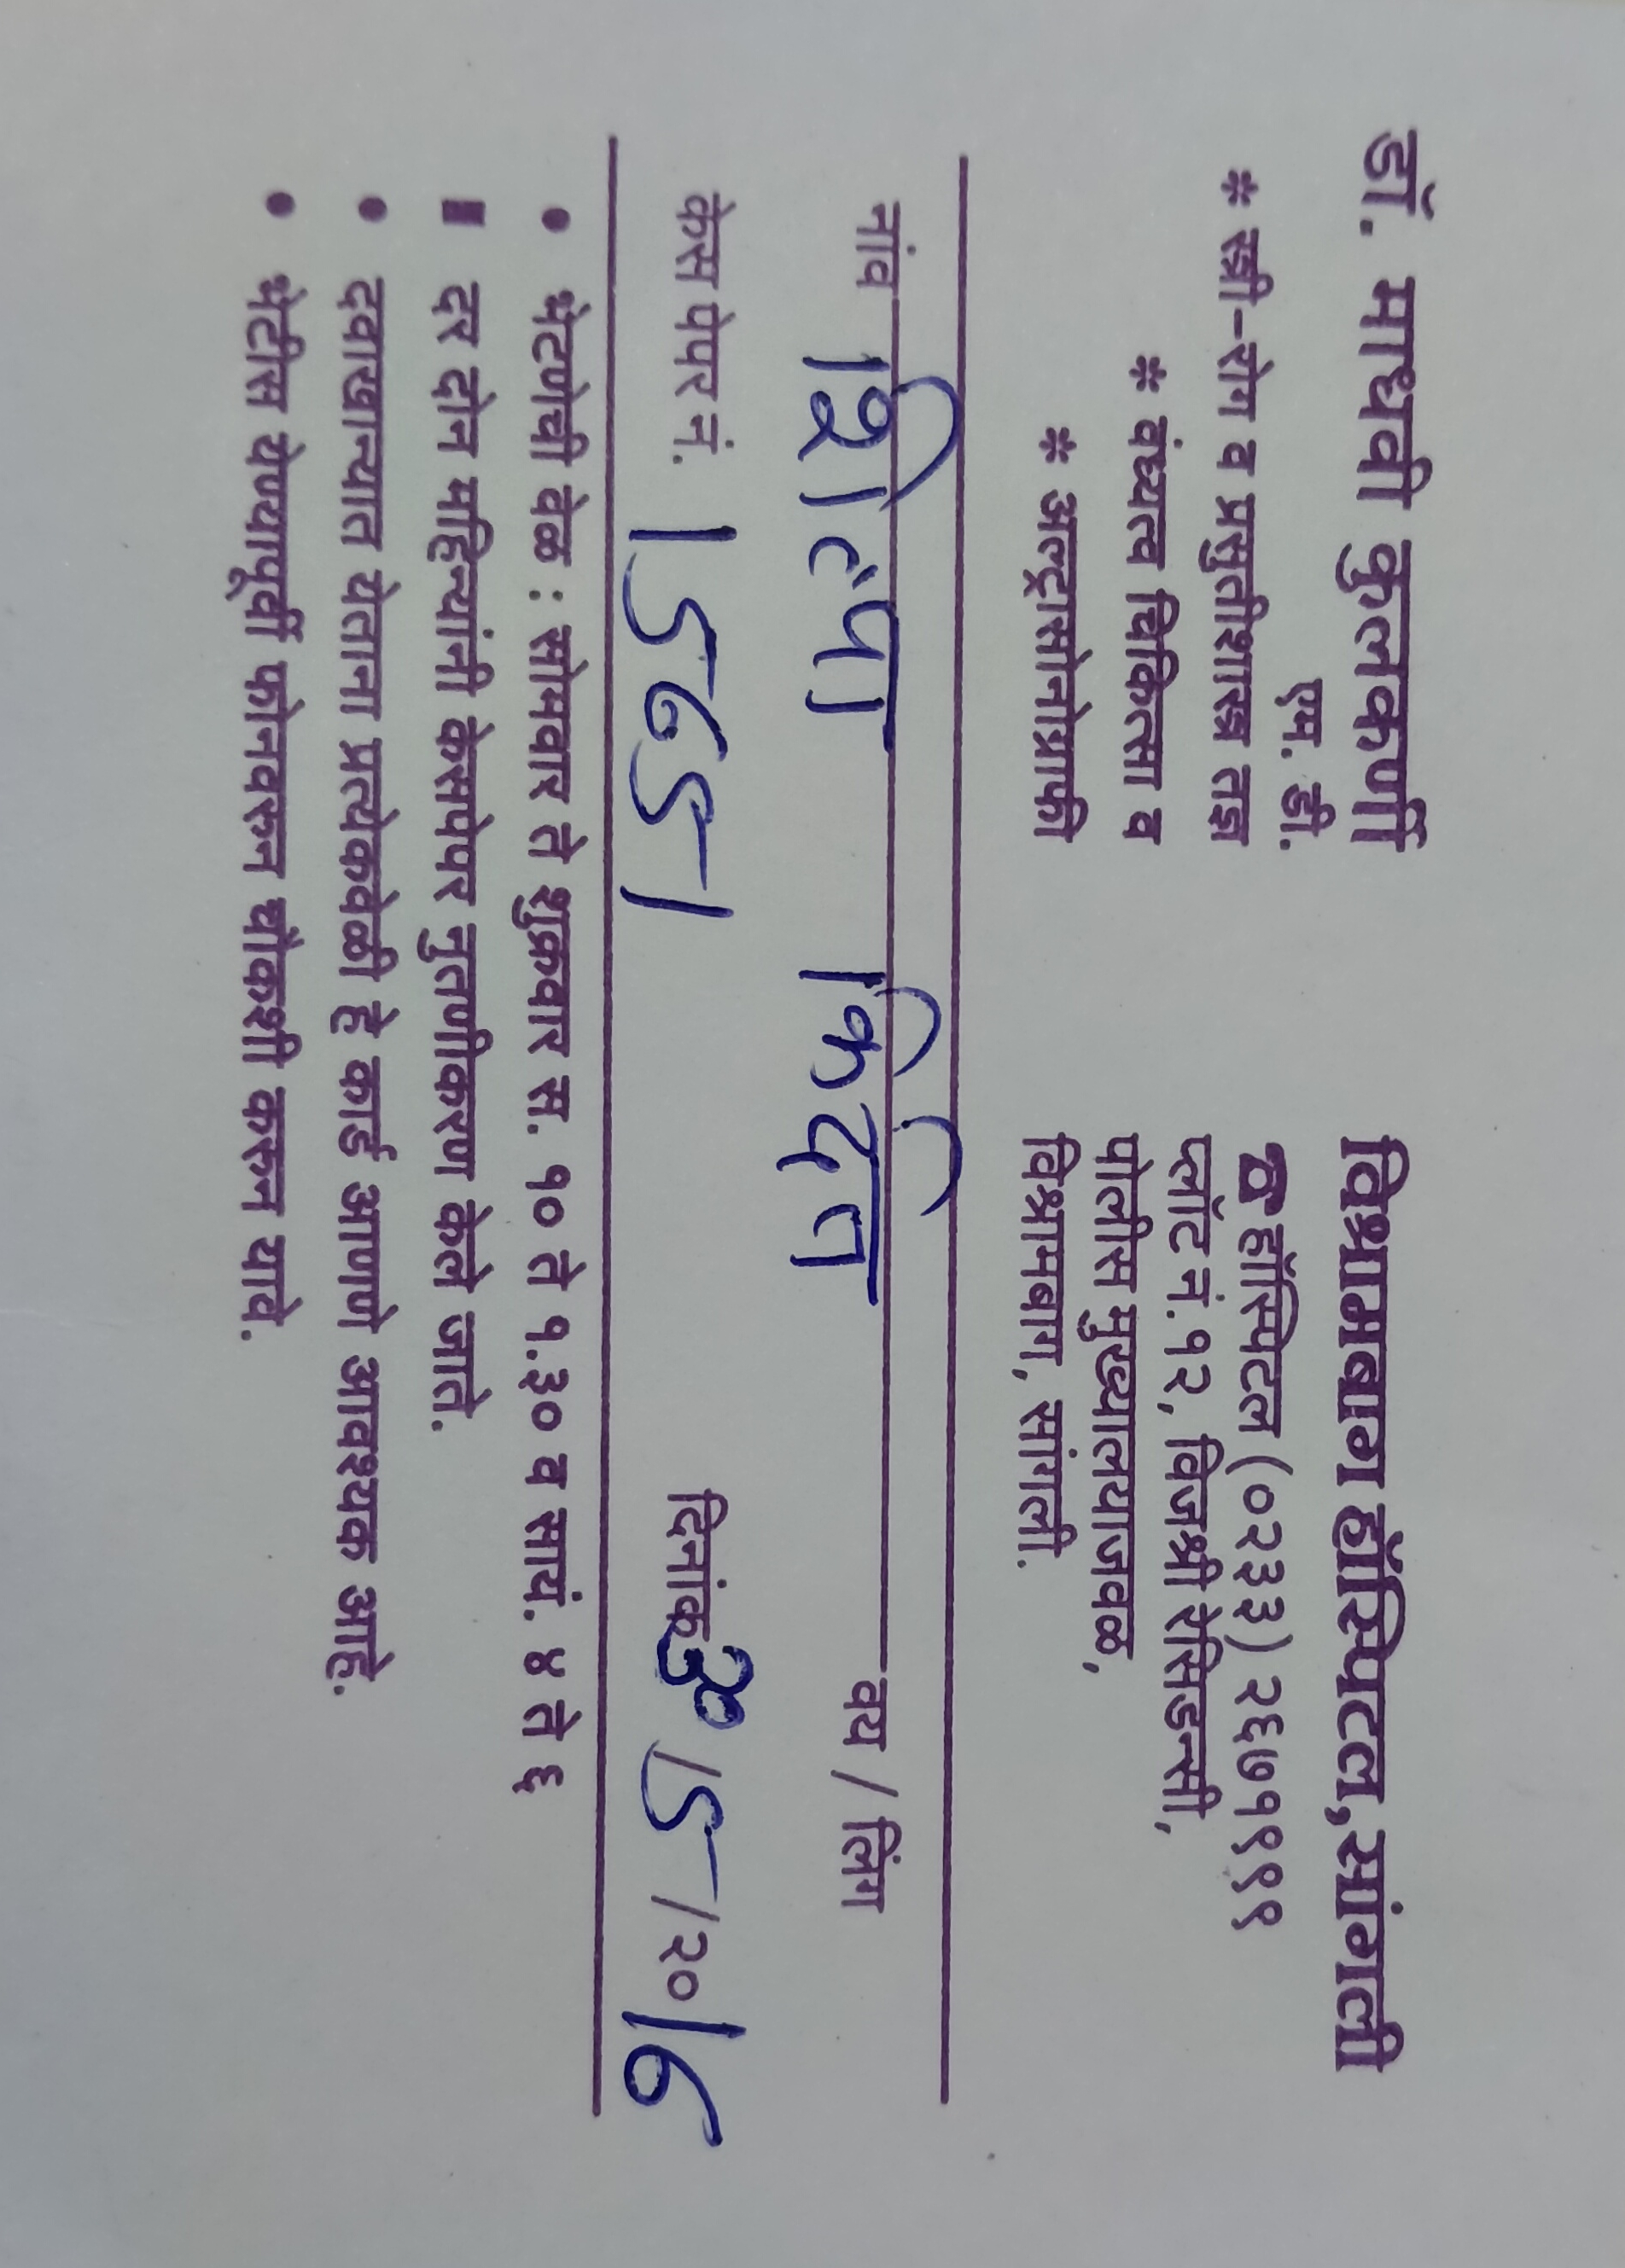 डॉ. माधवी कुलकर्णी
एम. डी.
* स्त्री-रोग व प्रसुतीशास्त्र तज्ञ
* वंध्यत्व चिकित्सा व
* अल्ट्रासोनोग्राफी
विश्रामबाग हॉस्पिटल,सांगली
☎ हॉस्पिटल (०२३३) २६७१९९९
प्लॉट नं. १२, विजश्री रेसिडन्सी,
पोलीस मुख्यालयाजवळ,
विश्रामबाग, सांगली.
नांव शिल्पा वय / लिंग
केस पेपर नं. 15651 दिनांक 30/5/२०16
• भेटणेची वेळ : सोमवार ते शुक्रवार स. १० ते १.३० व सायं. ४ ते ६
▮ दर दोन महिन्यांनी केसपेपर नुतणीकरण केले जाते.
• दवाखान्यात येताना प्रत्येकवेळी हे कार्ड आणणे आवश्यक आहे.
• भेटीस येण्यापूर्वी फोनवरून चौकशी करून यावे.